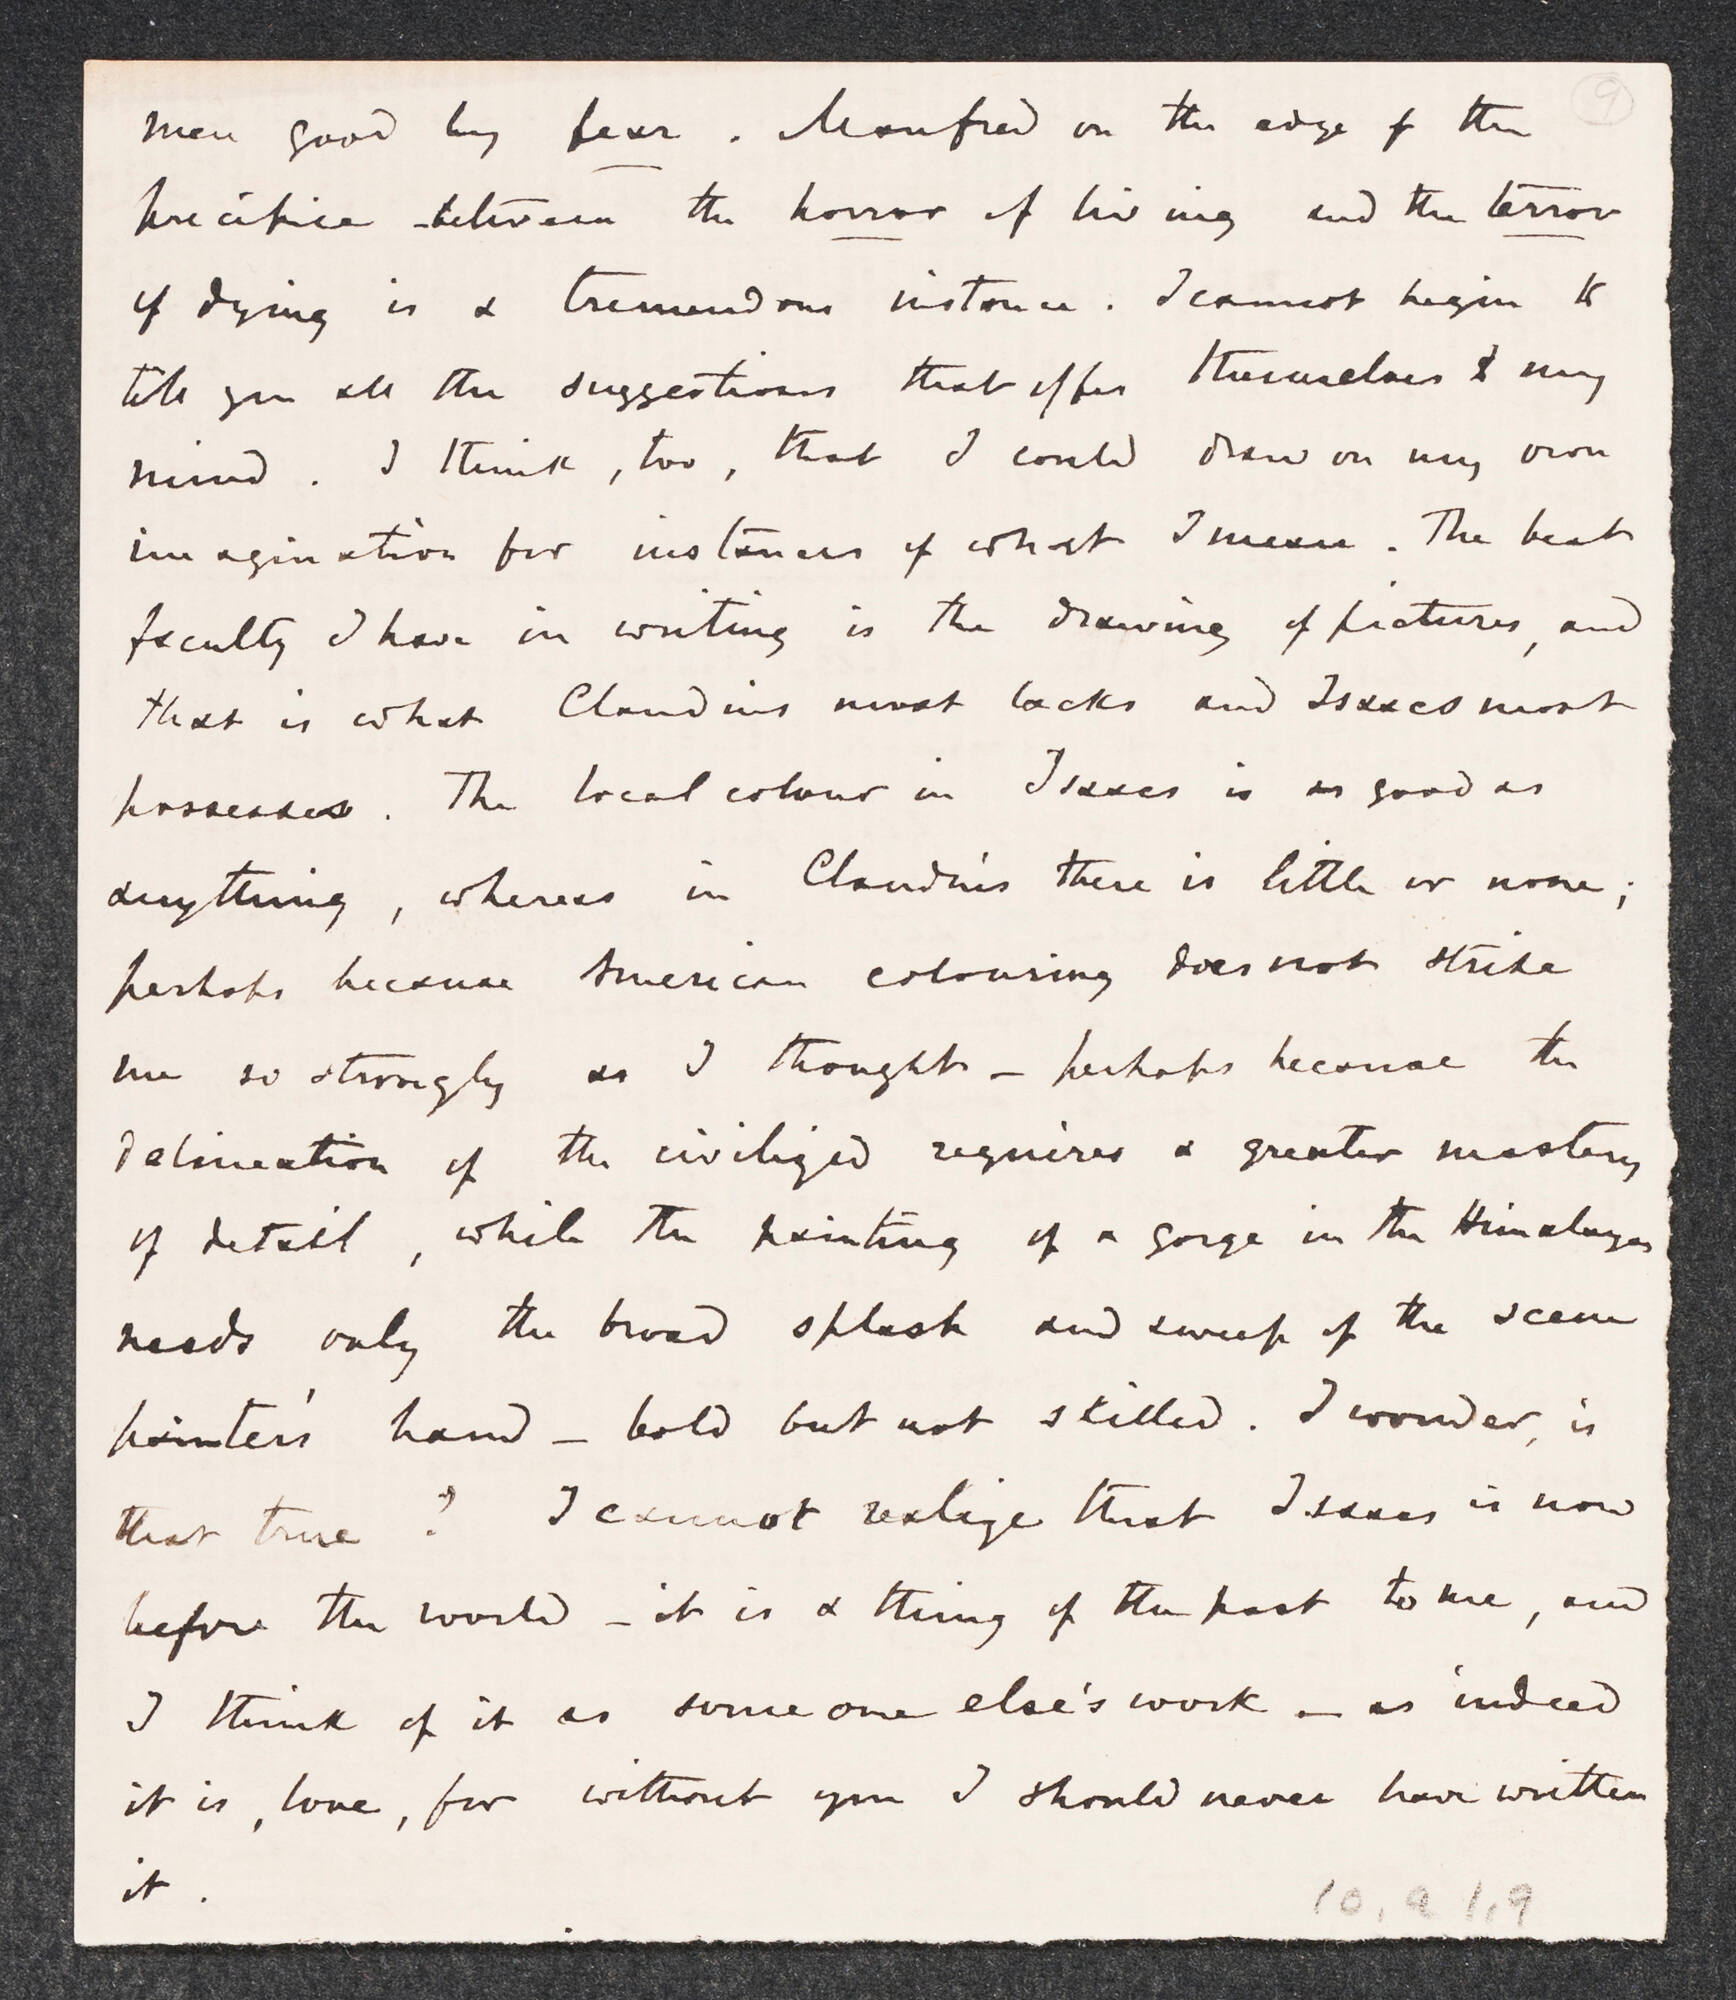 9
men good by fear. Manfred on the edge of the
precipice between the horror of living and the terror
of dying is a tremendous instance. I cannot begin to
tell you all the suggestions that offer themselves to my
mind. I think, too, that I could draw on my own
imagination for instances of what I mean. The best
faculty I have in writing is the drawing of pictures, and
that is what Claudius most lacks and Isaacs most
possesses. The local colour in Isaacs is as good as
anything, whereas in Claudius there is little or none;
perhaps because American colouring does not strike
me so strongly as I thought – perhaps because the
delineation of the civilized requires a greater mastery
of detail, while the painting of a gorge in the Himalayas
needs only the broad splash and sweep of the scene
painter's hand – bold but not skilled. I wonder, is
that true? I cannot realize that Isaacs is now
before the world – it is a thing of the past to me, and
I think of it as someone else's work – as indeed
it is, love, for without you I should never have written
it.